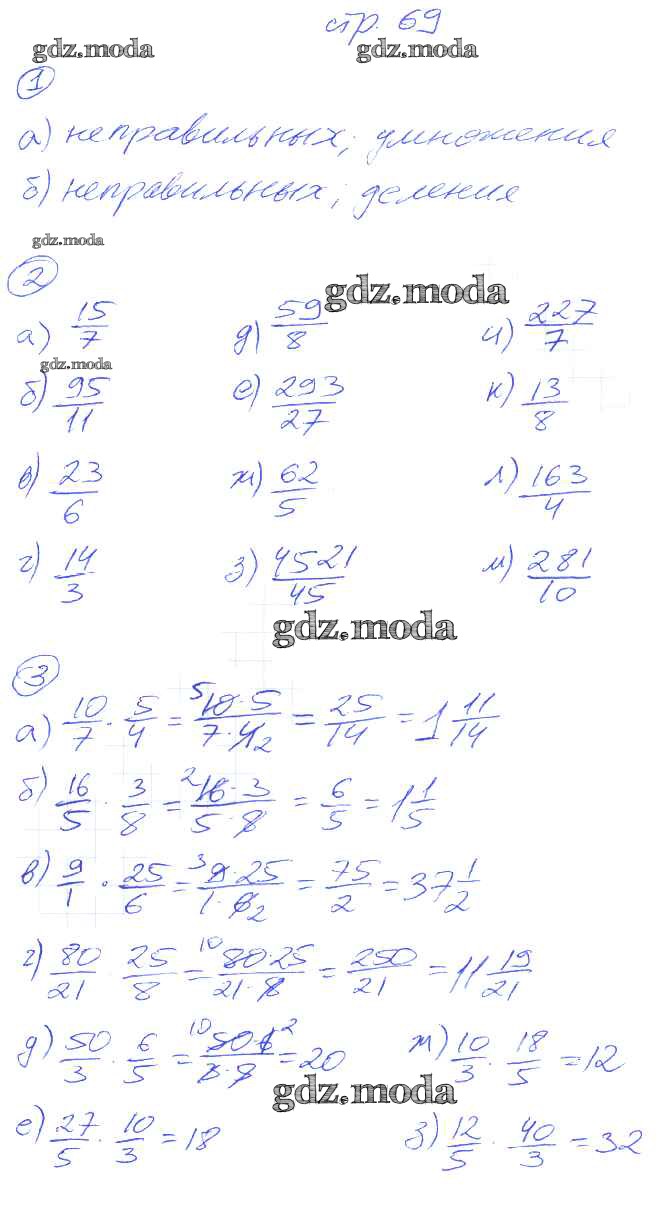 стр. 69
gdz.moda gdz.moda
1
а) неправильных; умножения
б) неправильных; деления
gdz.moda
2
gdz.moda
а) 15/7 д) 59/8 и) 227/7
gdz.moda
б) 95/11 е) 293/27 к) 13/8
в) 23/6 ж) 62/5 л) 163/4
г) 14/3 з) 4521/45 м) 281/10
gdz.moda
3
а) 10/7 · 5/4 = 5 10·5/7·4 2 = 25/14 = 1 11/14
б) 16/5 · 3/8 = 2 16·3/5·8 = 6/5 = 1 1/5
в) 9/1 · 25/6 = 3 9·25/1·6 2 = 75/2 = 37 1/2
г) 80/21 · 25/8 = 10 80·25/21·8 = 250/21 = 11 19/21
д) 50/3 · 6/5 = 10 50·6 2/3·5 = 20 ж) 10/3 · 18/5 = 12
gdz.moda
е) 27/5 · 10/3 = 18 з) 12/5 · 40/3 = 32